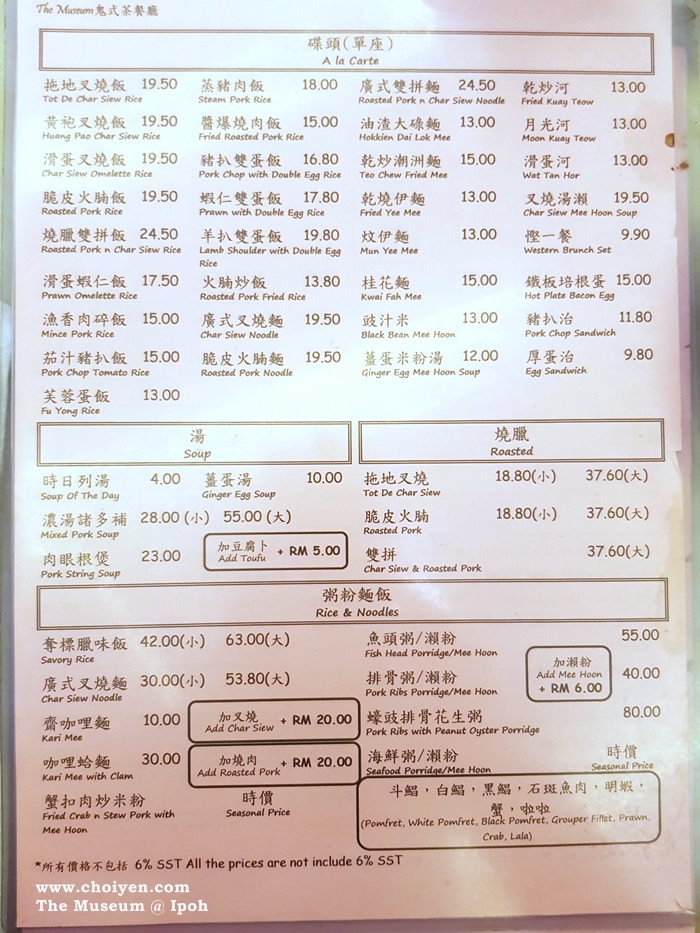 The Museum 鬼式茶餐廳
碟頭(單座)
A la Carte
拖地叉燒飯 19.50
Tot De Char Siew Rice
黃袍叉燒飯 19.50
Huang Pao Char Siew Rice
滑蛋叉燒飯 19.50
Char Siew Omelette Rice
脆皮火腩飯 19.50
Roasted Pork Rice
燒臘雙拼飯 24.50
Roasted Pork n Char Siew Rice
滑蛋蝦仁飯 17.50
Prawn Omelette Rice
漁香肉碎飯 15.00
Mince Pork Rice
茄汁豬扒飯 15.00
Pork Chop Tomato Rice
芙蓉蛋飯 13.00
Fu Yong Rice
蒸豬肉飯 18.00
Steam Pork Rice
醬爆燒肉飯 15.00
Fried Roasted Pork Rice
豬扒雙蛋飯 16.80
Pork Chop with Double Egg Rice
蝦仁雙蛋飯 17.80
Prawn with Double Egg Rice
羊扒雙蛋飯 19.80
Lamb Shoulder with Double Egg
Rice
火腩炒飯 13.80
Roasted Pork Fried Rice
廣式叉燒麵 19.50
Char Siew Noodle
脆皮火腩麵 19.50
Roasted Pork Noodle
廣式雙拼麵 24.50
Roasted Pork n Char Siew Noodle
油渣大碌麵 13.00
Hokkien Dai Lok Mee
乾炒潮洲麵 15.00
Teo Chew Fried Mee
乾燒伊麵 13.00
Fried Yee Mee
炆伊麵 13.00
Mun Yee Mee
桂花麵 15.00
Kwai Fah Mee
豉汁米 13.00
Black Bean Mee Hoon
薑蛋米粉湯 12.00
Ginger Egg Mee Hoon Soup
乾炒河 13.00
Fried Kuay Teow
月光河 13.00
Moon Kuay Teow
滑蛋河 13.00
Wat Tan Hor
叉燒湯瀨 19.50
Char Siew Mee Hoon Soup
慳一餐 9.90
Western Brunch Set
鐵板培根蛋 15.00
Hot Plate Bacon Egg
豬扒治 11.80
Pork Chop Sandwich
厚蛋治 9.80
Egg Sandwich
湯
Soup
時日列湯 4.00
Soup Of The Day
薑蛋湯 10.00
Ginger Egg Soup
濃湯諸多補 28.00 (小) 55.00 (大)
Mixed Pork Soup
肉眼根煲 23.00
Pork String Soup
加豆腐卜
Add Toufu + RM 5.00
燒臘
Roasted
拖地叉燒 18.80(小) 37.60(大)
Tot De Char Siew
脆皮火腩 18.80(小) 37.60(大)
Roasted Pork
雙拼 37.60(大)
Char Siew & Roasted Pork
粥粉麵飯
Rice & Noodles
奪標臘味飯 42.00(小) 63.00(大)
Savory Rice
廣式叉燒麵 30.00(小) 53.80(大)
Char Siew Noodle
齋咖哩麵 10.00
Kari Mee
加叉燒
Add Char Siew + RM 20.00
咖哩蛤麵 30.00
Kari Mee with Clam
加燒肉
Add Roasted Pork + RM 20.00
蟹扣肉炒米粉 時價
Fried Crab n Stew Pork with Seasonal Price
Mee Hoon
魚頭粥/瀨粉 55.00
Fish Head Porridge/Mee Hoon
排骨粥/瀨粉 40.00
Pork Ribs Porridge/Mee Hoon
加瀨粉
Add Mee Hoon
+ RM 6.00
蠔豉排骨花生粥 80.00
Pork Ribs with Peanut Oyster Porridge
海鮮粥/瀨粉 時價
Seafood Porridge/Mee Hoon Seasonal Price
斗鯧，白鯧，黑鯧，石斑魚肉，明蝦，
蟹，啦啦
(Pomfret, White Pomfret, Black Pomfret, Grouper Fillet, Prawn,
Crab, Lala)
*所有價格不包括 6% SST All the prices are not include 6% SST
www.choiyen.com
The Museum @ Ipoh